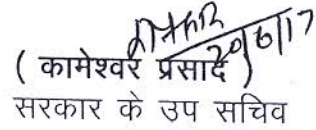 20/6/17
( कामेश्वर प्रसाद )
सरकार के उप सचिव